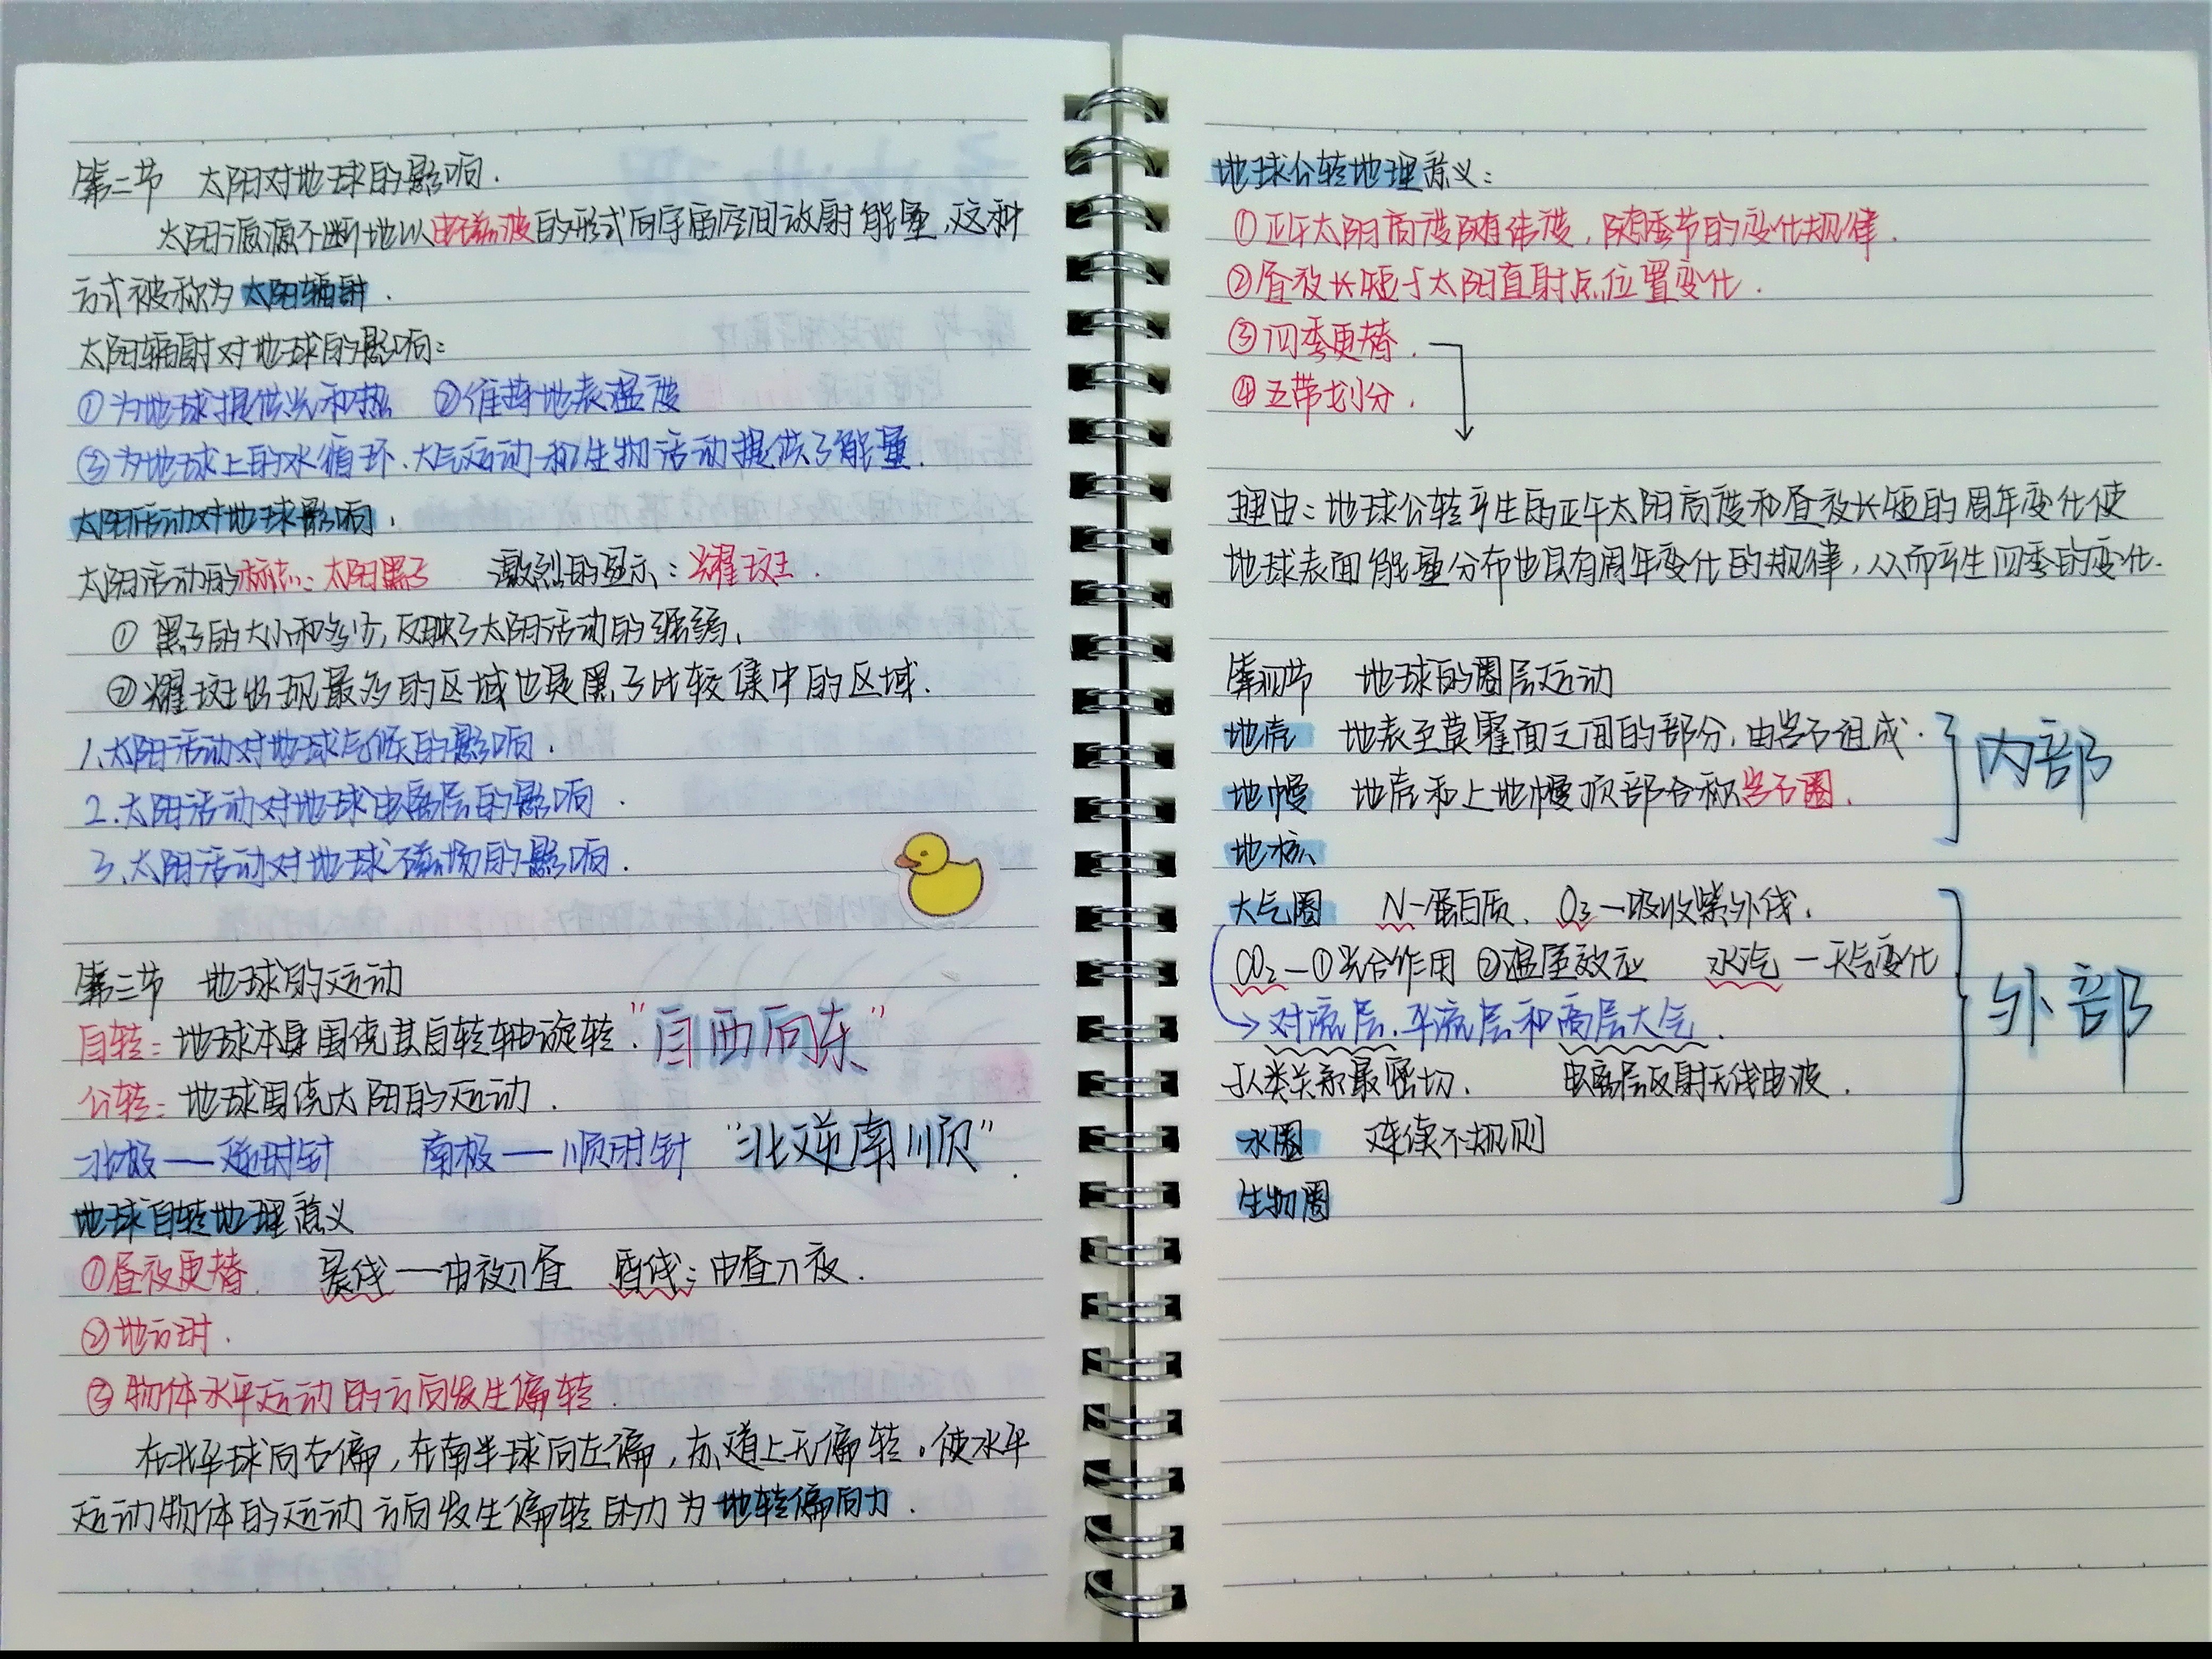 第二节 太阳对地球的影响.
太阳源源不断地以电磁波的形式向宇宙空间放射能量,这种
方式被称为太阳辐射.
太阳辐射对地球的影响:
①为地球提供光和热 ②维持地表温度
③为地球上的水循环、大气运动和生物活动提供了能量.
太阳活动对地球影响.
太阳活动的标志:太阳黑子 激烈的显示:耀斑.
①黑子的大小和多少,反映了太阳活动的强弱.
②耀斑出现最多的区域也是黑子比较集中的区域.
1、太阳活动对地球气候的影响.
2.太阳活动对地球电离层的影响.
3、太阳活动对地球磁场的影响.
第三节 地球的运动
自转:地球本身围绕其自转轴旋转."自西向东"
公转:地球围绕太阳的运动.
北极——逆时针 南极——顺时针 "北逆南顺".
地球自转地理意义
①昼夜更替. 晨线——由夜入昼 昏线:由昼入夜.
②地方时.
③物体水平运动的方向发生偏转.
在北半球向右偏,在南半球向左偏,赤道上无偏转。使水平
运动物体的运动方向发生偏转的力为地转偏向力.
地球公转地理意义:
①正午太阳高度随纬度,随季节的变化规律.
②昼夜长短与太阳直射点位置变化.
③四季更替.
④五带划分.
理由:地球公转产生的正午太阳高度和昼夜长短的周年变化使
地球表面能量分布也具有周年变化的规律,从而产生四季的变化.
第四节 地球的圈层运动
地壳 地表至莫霍面之间的部分,由岩石组成.
内部
地幔 地壳和上地幔顶部合称岩石圈.
地核
大气圈 N-蛋白质、O₃—吸收紫外线.
CO₂—①光合作用 ②温室效应 水汽—天气变化
外部
对流层、平流层和高层大气.
与人类关系最密切. 电离层反射无线电波.
水圈 连续不规则
生物圈